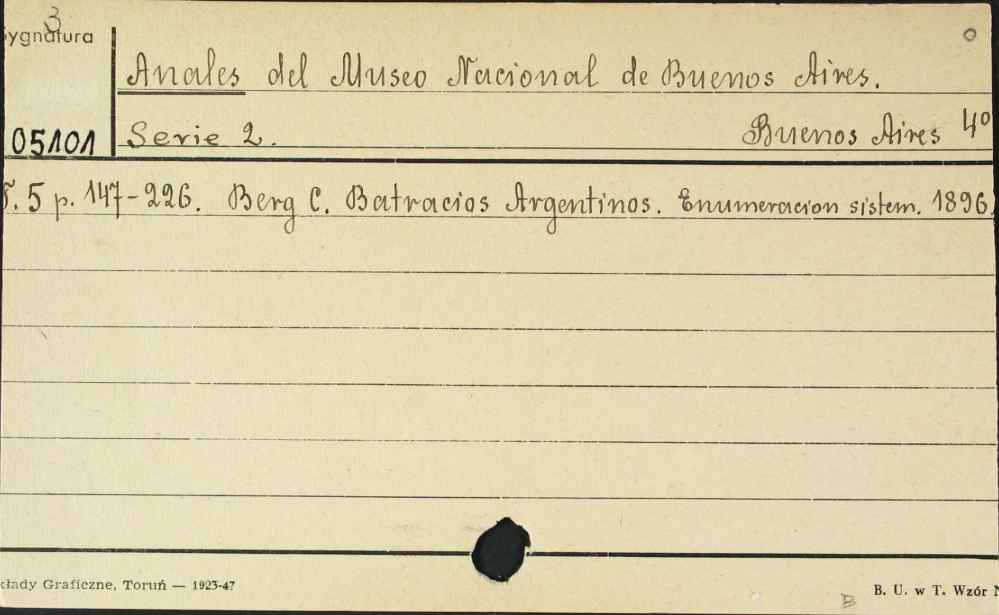 3
ygnatura
Anales del Museo Nacional de Buenos Aires.
05101
Serie 2.
Buenos Aires 4º
T. 5 p. 147-226. Berg C. Batracios Argentinos. Enumeracion sistem. 1896.
kłady Graficzne, Toruń — 1923-47
B
B. U. w T. Wzór N